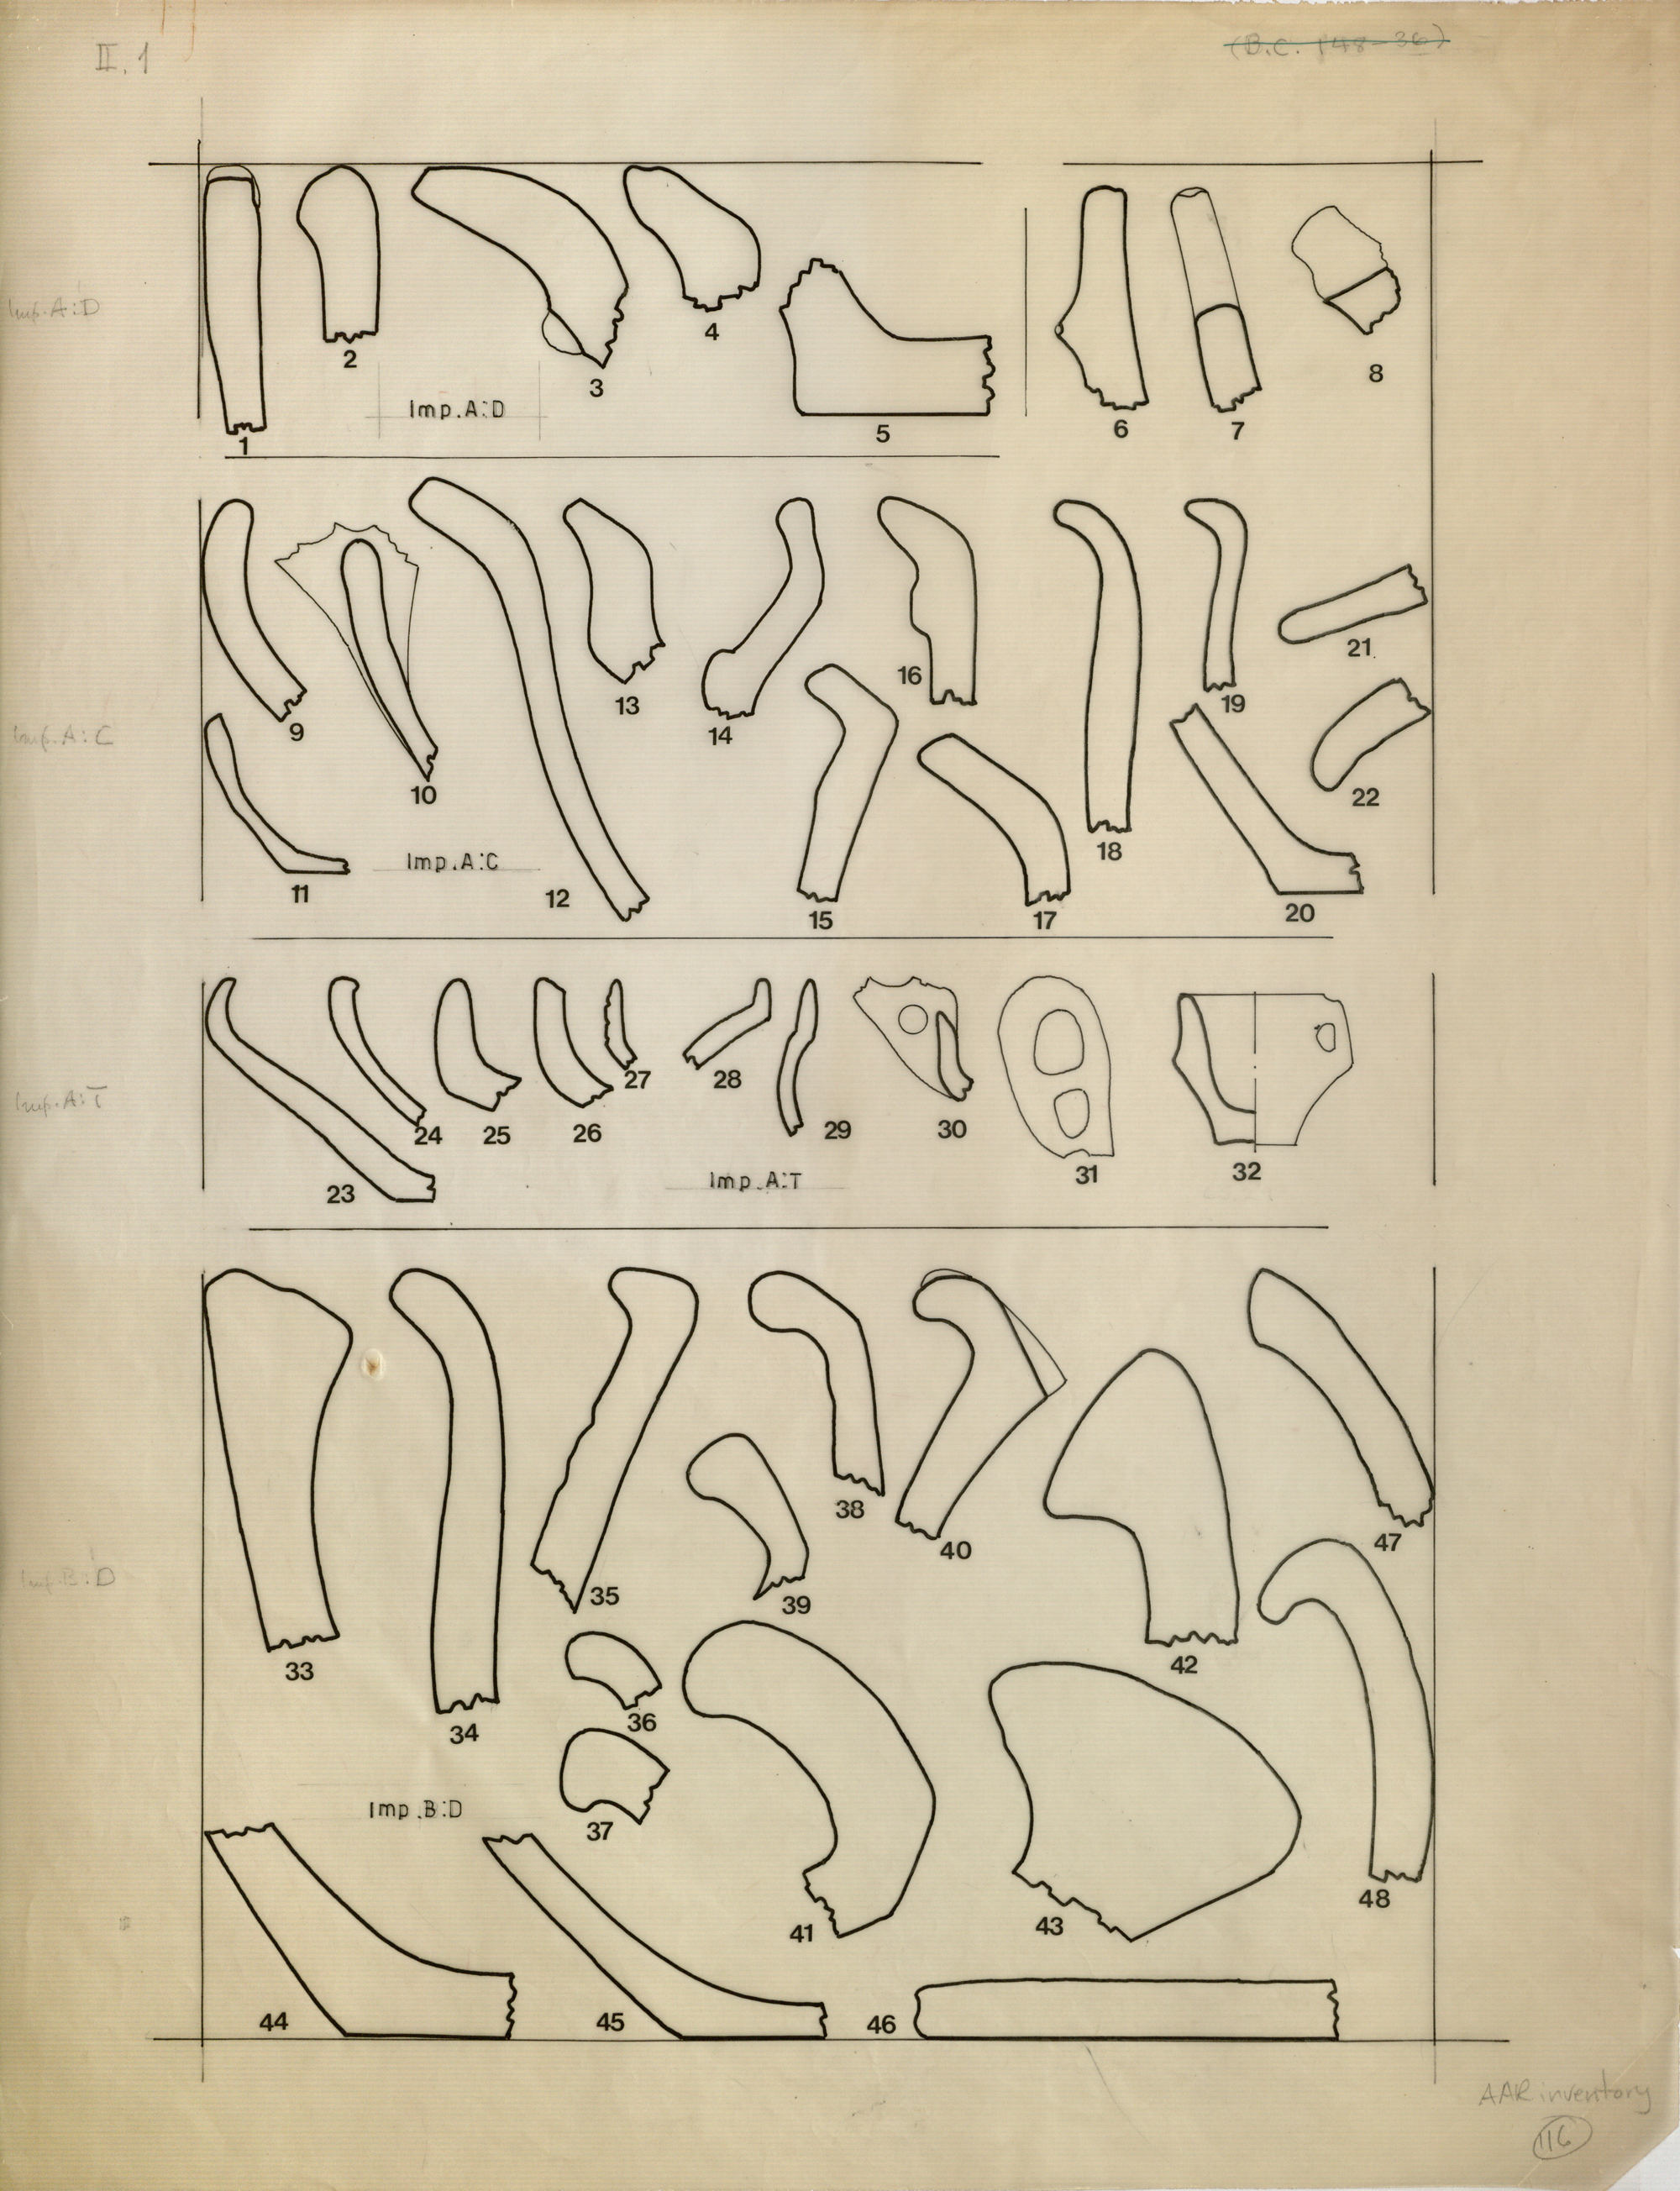 II.1
(B.C. 148-36)
Imp.A:D
1
2
3
4
5
6
7
8
Imp.A:D
Imp.A:C
9
10
11
12
13
14
15
16
17
18
19
20
21
22
Imp.A:C
Imp.A:T
23
24
25
26
27
28
29
30
31
32
Imp.A:T
Imp.B:D
33
34
35
36
37
38
39
40
41
42
43
44
45
46
47
48
Imp.B:D
AAR inventory
116